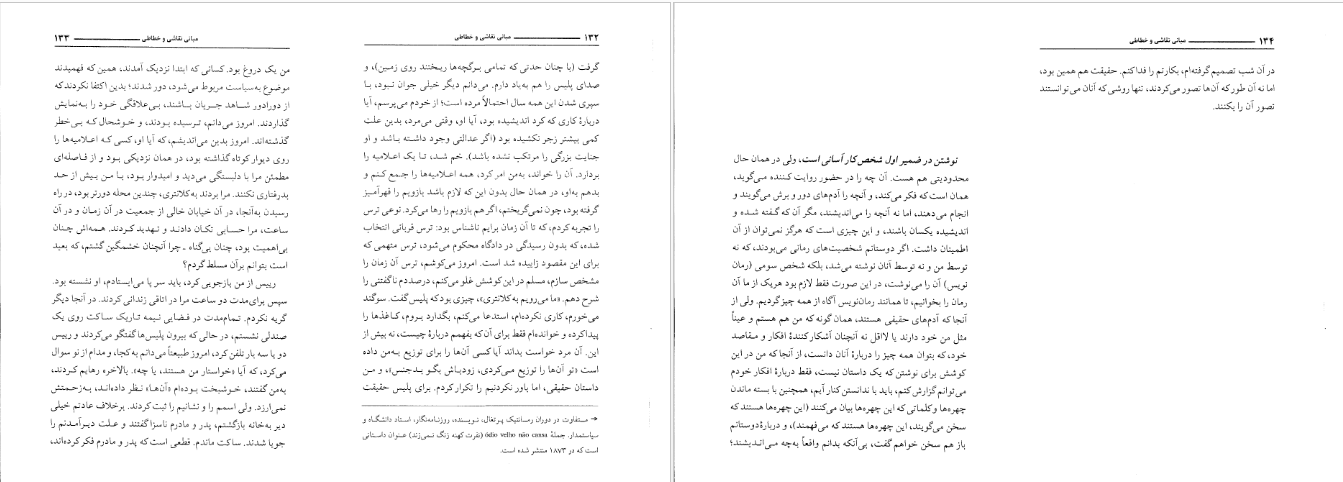 ۱۳۲ مبانی نقاشی و خطاطی
گرفت (با چنان حدتی که تمامی برگچه‌ها ریختند روی زمین)، و
صدای پلیس را هم به‌یاد دارم. می‌دانم دیگر خیلی جوان نبود، با
سپری شدن این همه سال احتمالاً مرده است؛ از خودم می‌پرسم، آیا
دربارهٔ کاری که کرد اندیشیده بود، آیا او، وقتی می‌مرد، بدین علت
کمی بیشتر زجر نکشیده بود (اگر عدالتی وجود داشته باشد و او
جنایت بزرگی را مرتکب نشده باشد). خم شد، تا یک اعلامیه را
بردارد. آن را خواند، به‌من امر کرد، همه اعلامیه‌ها را جمع کنم و
بدهم به‌او، در همان حال بدون این که لازم باشد بازویم را قهرآمیز
گرفته بود، چون نمی‌گریختم، اگر هم بازویم را رها می‌کرد. نوعی ترس
را تجربه کردم، که تا آن زمان برایم ناشناس بود: ترس قربانی انتخاب
شده، که بدون رسیدگی در دادگاه محکوم می‌شود، ترس متهمی که
برای این مقصود زاییده شد است. امروز می‌کوشم، ترس آن زمان را
مشخص سازم، مسلم در این کوشش غلو می‌کنم، درصددم ناگفتنی را
شرح دهم. «ما می‌رویم به‌کلانتری»، چیزی بود که پلیس گفت. سوگند
می‌خورم، کاری نکرده‌ام، استدعا می‌کنم، بگذارد بروم، کاغذها را
پیدا کرده و خوانده‌ام فقط برای آن‌که بفهمم دربارهٔ چیست، نه بیش از
این. آن مرد خواست بداند آیا کسی آن‌ها را برای توزیع به‌من داده
است «تو آن‌ها را توزیع می‌کردی، زودباش بگو بدجنس»، و من
داستان حقیقی، اما باور نکردنیم را تکرار کردم. برای پلیس حقیقت
← متفاوت در دوران رمانتیک پرتغال، نویسنده، روزنامه‌نگار، استاد دانشگاه و
سیاستمدار. جملهٔ ódio velho não cansa (نفرت کهنه زنگ نمی‌زند) عنوان داستانی
است که در ۱۸۷۳ منتشر شده است.
مبانی نقاشی و خطاطی ۱۳۳
من یک دروغ بود. کسانی که ابتدا نزدیک آمدند، همین که فهمیدند
موضوع به‌سیاست مربوط می‌شود، دور شدند؛ بدین اکتفا نکردند که
از دورادور شاهد جریان باشند، بی‌علاقگی خود را به‌نمایش
گذاردند. امروز می‌دانم، ترسیده بودند، و خوشحال که بی‌خطر
گذشته‌اند. امروز بدین می‌اندیشم، که آیا او، کسی کـه اعلامیه‌ها را
روی دیوار کوتاه گذاشته بود، در همان نزدیکی بود و از فاصله‌ای
مطمئن مرا با دلبستگی می‌دید و امیدوار بود، با من بیش از حد
بدرفتاری نکنند. مرا بردند به‌کلانتری، چندین محله دورتر بود، در راه
رسیدن به‌آنجا، در آن خیابان خالی از جمعیت در آن زمان و در آن
ساعت، مرا حسابی تکان دادند و تهدید کردند. همه‌اش چنان
بی‌اهمیت بود، چنان بی‌گناه ـ چرا آنچنان خشمگین گشتم، که بعید
است بتوانم برآن مسلط گردم؟
رییس از من بازجویی کرد، باید سر پا می‌ایستادم، او نشسته بود.
سپس برای‌مدت دو ساعت مرا در اتاقی زندانی کردند. در آنجا دیگر
گریه نکردم. تمام‌مدت در فضایی نیمه تاریک ساکت روی یک
صندلی نشستم، در حالی که بیرون پلیس‌ها گفتگو می‌کردند و رییس
دو یا سه بار تلفن کرد، امروز طبیعتاً می‌دانم به‌کجا، و مدام از نو سوال
می‌کرد، که آیا «خواستار من هستند، یا چه». بالاخره رهایم کردند،
به‌من گفتند، خوشبخت بوده‌ام «آن‌ها» نظر داده‌اند، به‌زحمتش
نمی‌ارزد. ولی اسمم را و نشانیم را ثبت کردند. برخلاف عادتم خیلی
دیر به‌خانه بازگشتم، پدر و مادرم ناسزا گفتند و علت دیرآمدنم را
جویا شدند. ساکت ماندم. قطعی است که پدر و مادرم فکر کرده‌اند،
۱۳۴ مبانی نقاشی و خطاطی
در آن شب تصمیم گرفته‌ام، بکارتم را فدا کنم. حقیقت هم همین بود،
اما نه آن طور که آن‌ها تصور می‌کردند، تنها روشی که آنان می‌توانستند
تصور آن را بکنند.
نوشتن در ضمیر اول شخص کار آسانی است، ولی در همان حال
محدودیتی هم هست. آن چه را در حضور روایت کننده می‌گوید،
همان است که فکر می‌کند، و آنچه را آدم‌های دور و برش می‌گویند و
انجام می‌دهند، اما نه آنچه را می‌اندیشند، مگر آن که گفته شده و
اندیشیده یکسان باشند، و این چیزی است که هرگز نمی‌توان از آن
اطمینان داشت. اگر دوستانم شخصیت‌های رمانی می‌بودند، که نه
توسط من و نه توسط آنان نوشته می‌شد، بلکه شخص سومی (رمان
نویس) آن را می‌نوشت، در این صورت فقط لازم بود هریک از ما آن
رمان را بخوانیم، تا همانند رمان‌نویس آگاه از همه چیز گردیم. ولی از
آنجا که آدم‌های حقیقی هستند، همان گونه که من هم هستم و عیناً
مثل من خود دارند یا لااقل نه آنچنان آشکارکنندهٔ افکار و مقاصد
خود، که بتوان همه چیز را دربارهٔ آنان دانست، از آنجا که من در این
کوشش برای نوشتن که یک داستان نیست، فقط دربارهٔ افکار خودم
می‌توانم گزارش کنم، باید با ندانستن کنار آیم، همچنین با بسته ماندن
چهره‌ها و کلماتی که این چهره‌ها بیان می‌کنند (این چهره‌ها هستند که
سخن می‌گویند، این چهره‌ها هستند که می‌فهمند)، و دربارهٔ دوستانم
باز هم سخن خواهم گفت، بی‌آنکه بدانم واقعاً به‌چه می‌اندیشند؛